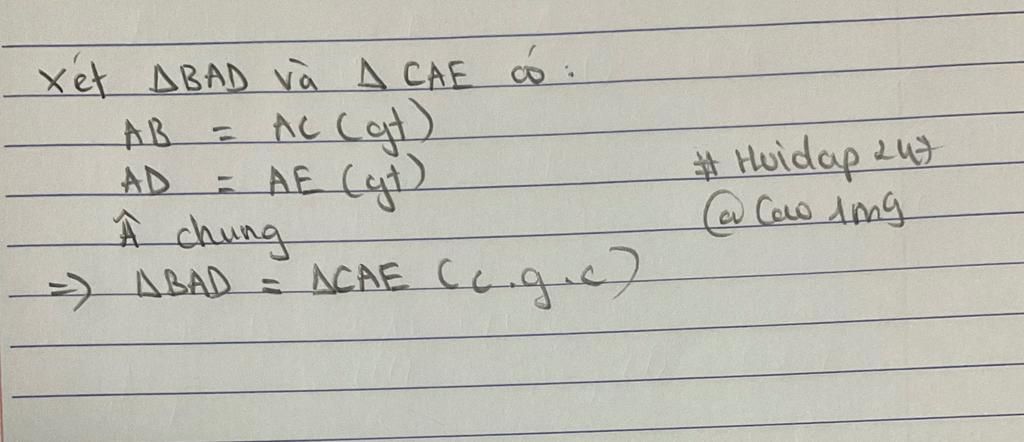 Xét ΔBAD và Δ CAE có :
AB = AC (gt)
AD = AE (gt)
Â chung
=> ΔBAD = ΔCAE (c.g.c)
# Hoidap 247
@ Cao 1mg